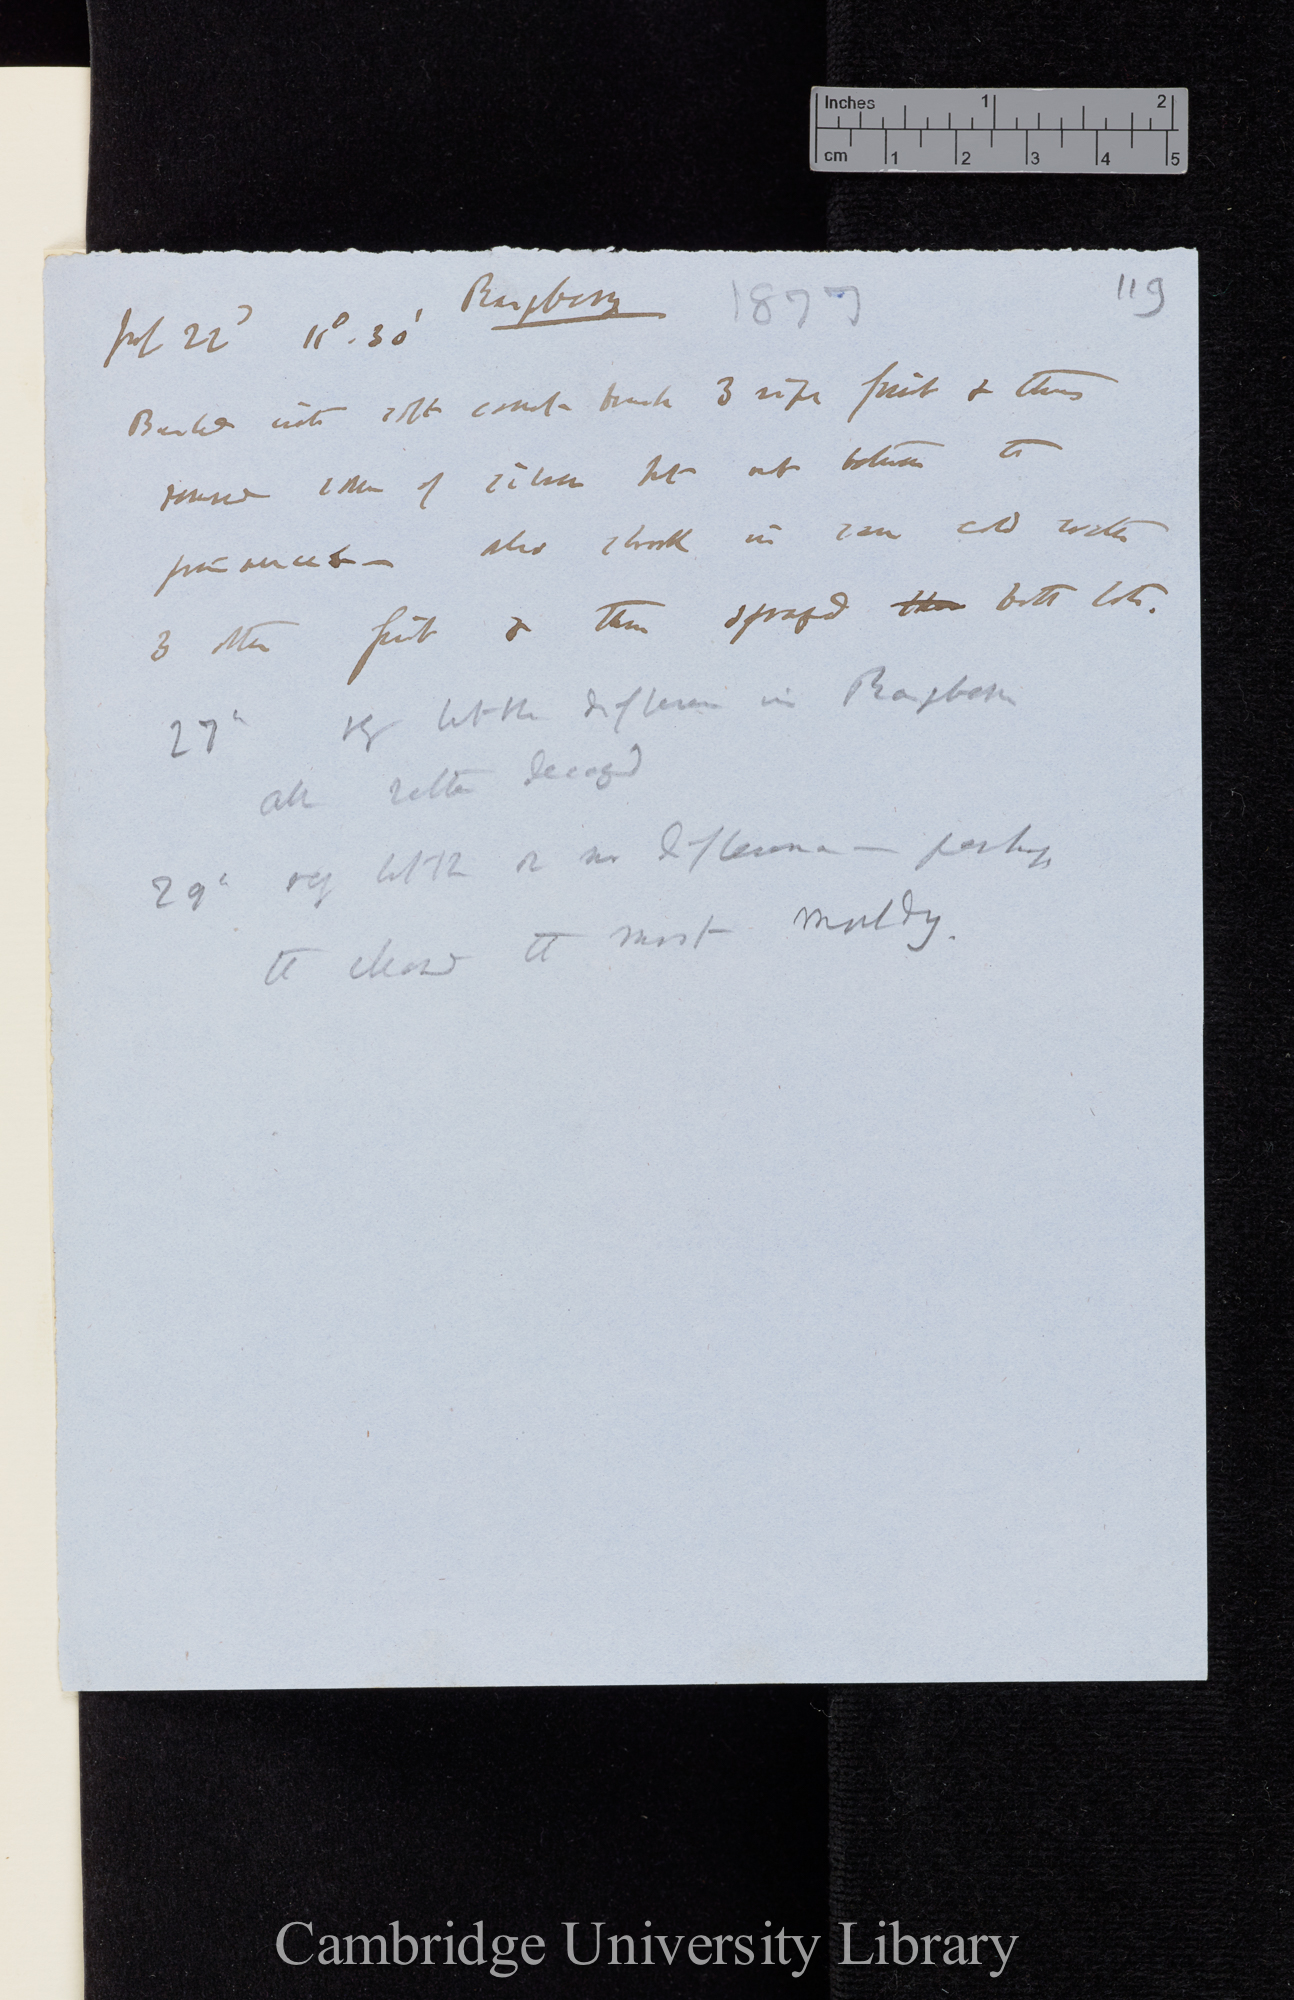 Inches 1 2
cm 1 2 3 4 5
119
Raspberry 1877
July 22d 11°.30'
Brushed with soft camel brush 3 ripe fruit & thus
removed some of bloom but not between the
also shook in some cold water
3 other fruit & then syringed both lots.
27th very little difference in Raspberries
all rather decayed
29th very little or no difference — perhaps
the cleaned the most mouldy.
Cambridge University Library